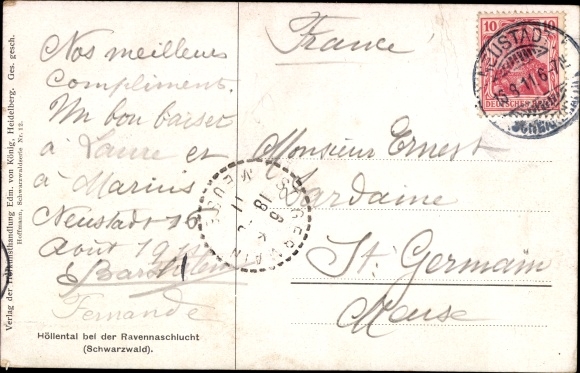 Verlag der Hofkunsthandlung Edm. von König, Heidelberg. Ges. gesch.
Hoffmann, Schwarzwaldserie Nr. 12.
Nos meilleurs
compliments.
Un bon baiser
à Laure et
à Marius
Neustadt 16
Août 1911
Fernande
Höllental bei der Ravennaschlucht
(Schwarzwald).
France
Monsieur Ernest
St. Germain
Meuse
10 10
DEUTSCHES
NEUSTADT
16.8.11.6-7N.
ST GERMAIN
MEUSE
18
11